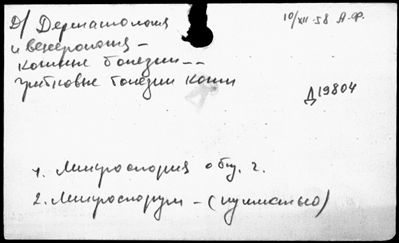 Д/ Дерматология
и венерология –
кожные болезни --
грибковые болезни кожи
10/XII-58 А.Ф.
Д19804
1. Микроспория общ. ч.
2. Микроспорум – (пушистый)